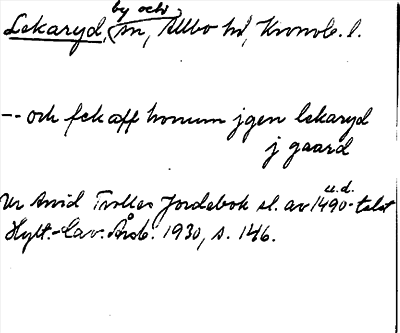 by och
Lekaryd, sn, Allbo hd, Kronob. l.
-- och fek aff honum jgen lekaryd
j gaard
u.d.
Ur Arvid Trolles Jordebok sl. av 1490-talet
Hylt.-Cav. Årsb. 1930, s. 146.